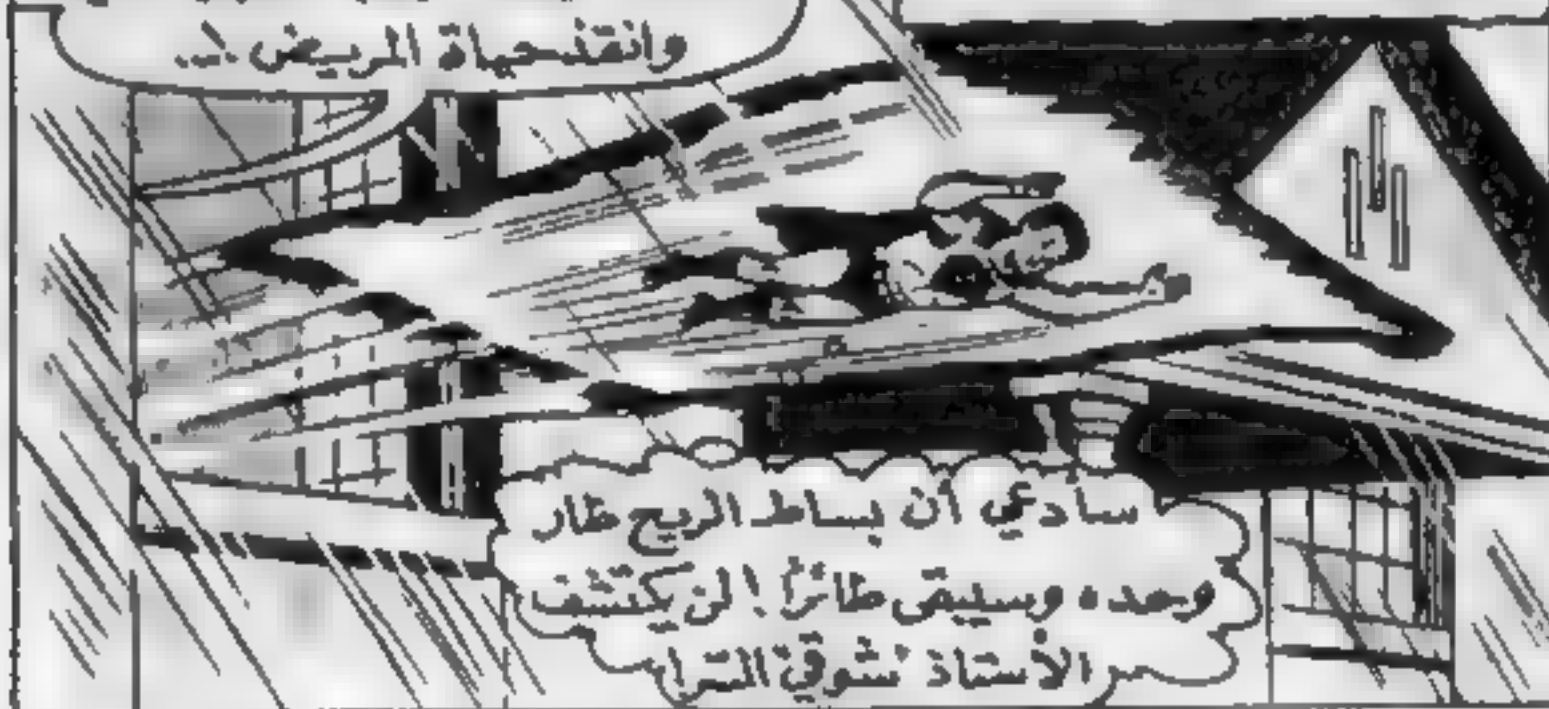 وانقذ حياة المريض !..
سأدعي أن بساط الريح طار
وحده وسيبقى طائرًا ! لن يكتشف
الأستاذ شوقي السر !